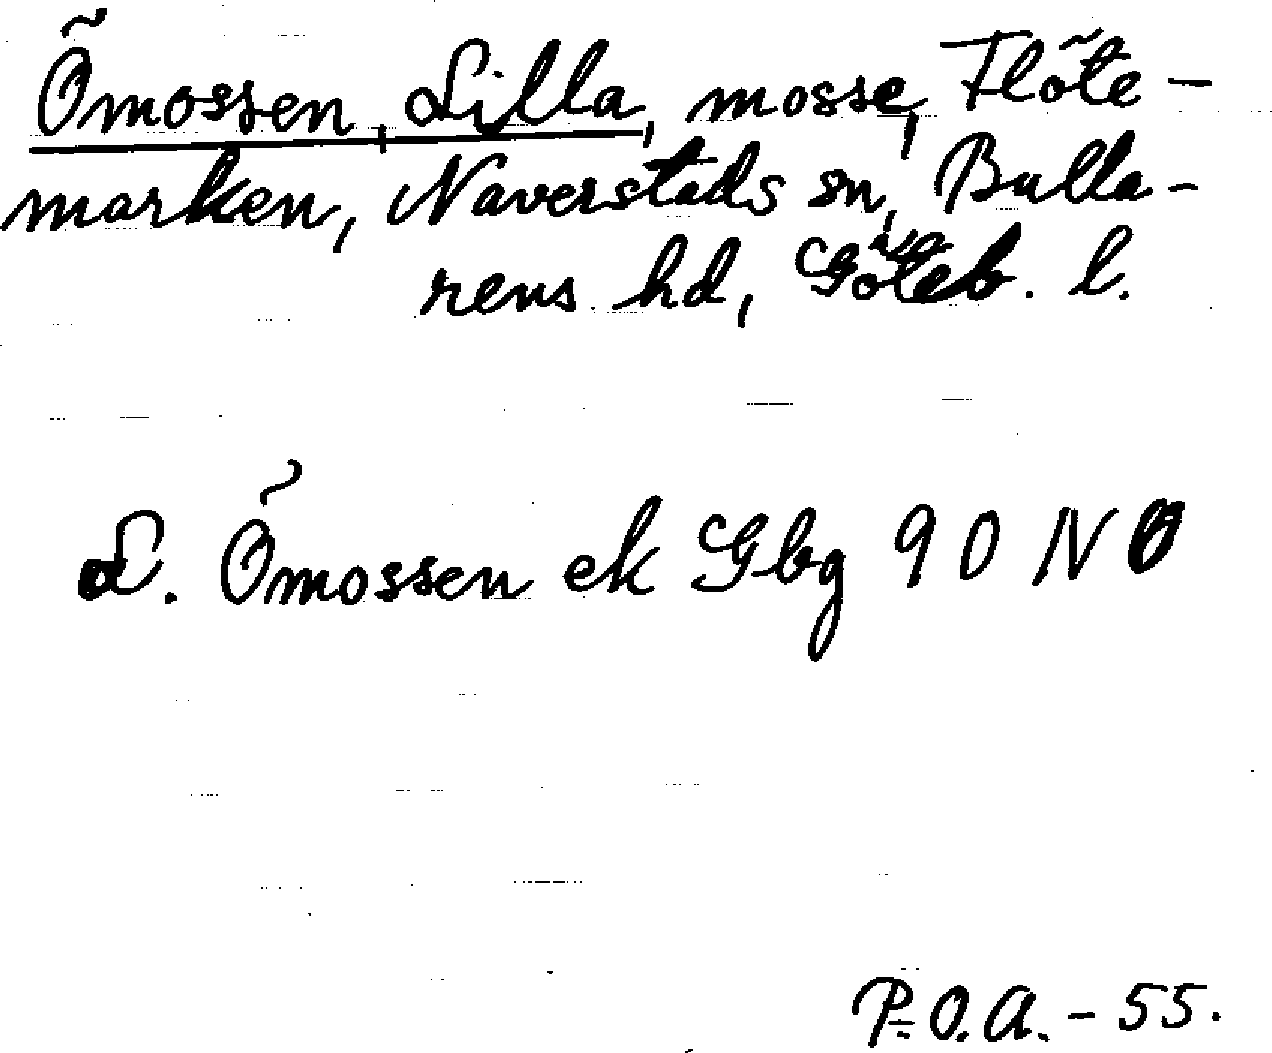 Õmossen, Lilla, mosse, Flõte-
marken, Naverstads sn, Bulla-
rens hd, Göteb. l.
L. Õmossen ek Gbg 90 NO
P.O.A.-55.